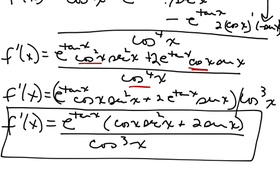 - e^tanx 2(cosx)' (-sinx)
cos^4 x
f'(x) = e^tanx cos^2x sinx^2 + 2e^tanx cosx sinx
cos^4 x
f'(x) = (e^tanx cosx sinx^2 + 2e^tanx sinx)/cos^3 x
f'(x) = e^tanx (cosx sinx^2 + 2sinx)
cos^3 x